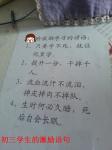 励志勤学习的语句:
1、只要学不死,就往
死里学。
2、提升一分,干掉千
人。
3、流血流汗不流泪,
掉皮掉肉不掉队。
4、生时何必久睡,死
后自会长眠。
初三学生的激励语句